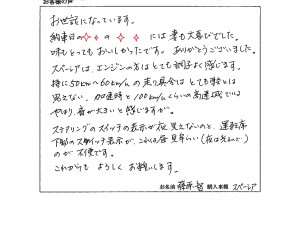 お客様の声
お世話になっています。
納車日の の には妻も大喜びでした。
味もとってもおいしかったです。ありがとうございました。
スペーシアは、エンジンの方はとても調子よく感じます。
特に50km〜60km/hの走り具合はとても軽とは
思えない、加速時と100km/hくらいの高速域では
やはり音が大きいと感じますが。
ステアリングのスイッチの表示が夜見えないのと、運転席
下部のスイッチ表示が、これも昼見辛い(夜は光るので)
のが不便です。
これからもよろしくお願いします。
お名前 様 購入車種 スペーシア